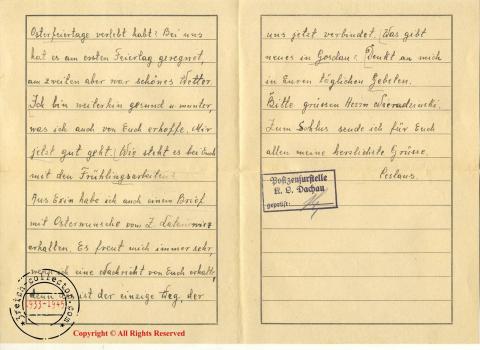 Osterfeiertage verlebt habt? Bei uns
hat es am ersten Feiertag geregnet,
am zweiten aber war schönes Wetter.
Ich bin weiterhin gesund u. munter,
was ich auch von Euch erhoffe. Mir
jetzt gut geht. Wie steht es bei Euch
mit den Frühlingsarbeiten?
Aus Exin habe ich auch einen Brief
mit Osterwunsche vom Z.
erhalten. Es freut mich immer sehr,
wenn ich eine Nachricht von Euch erhalte,
denn das ist der einzige Weg, der
uns jetzt verbindet. Was gibt
neues in Gosdau? Denkt an mich
in Euren täglichen Gebeten.
Bitte grüssen Herrn
Zum Schlus sende ich für Euch
allen meine herzlichste Grüsse.
Postzensurstelle
K. L. Dachau
geprüft:
3reich-collector.com
1933-1945
Copyright © All Rights Reserved